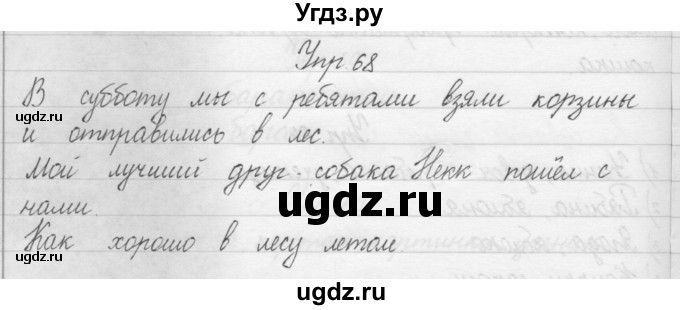 Угдз.ру
Упр. 68
В субботу мы с ребятами взяли корзины
и отправились в лес.
Мой лучший друг - собака Некк пошёл с
нами.
Как хорошо в лесу летом
gdz.ru
gdz.ru
ugdz.ru
gdz.ru
gdz.ru
ugdz.ru